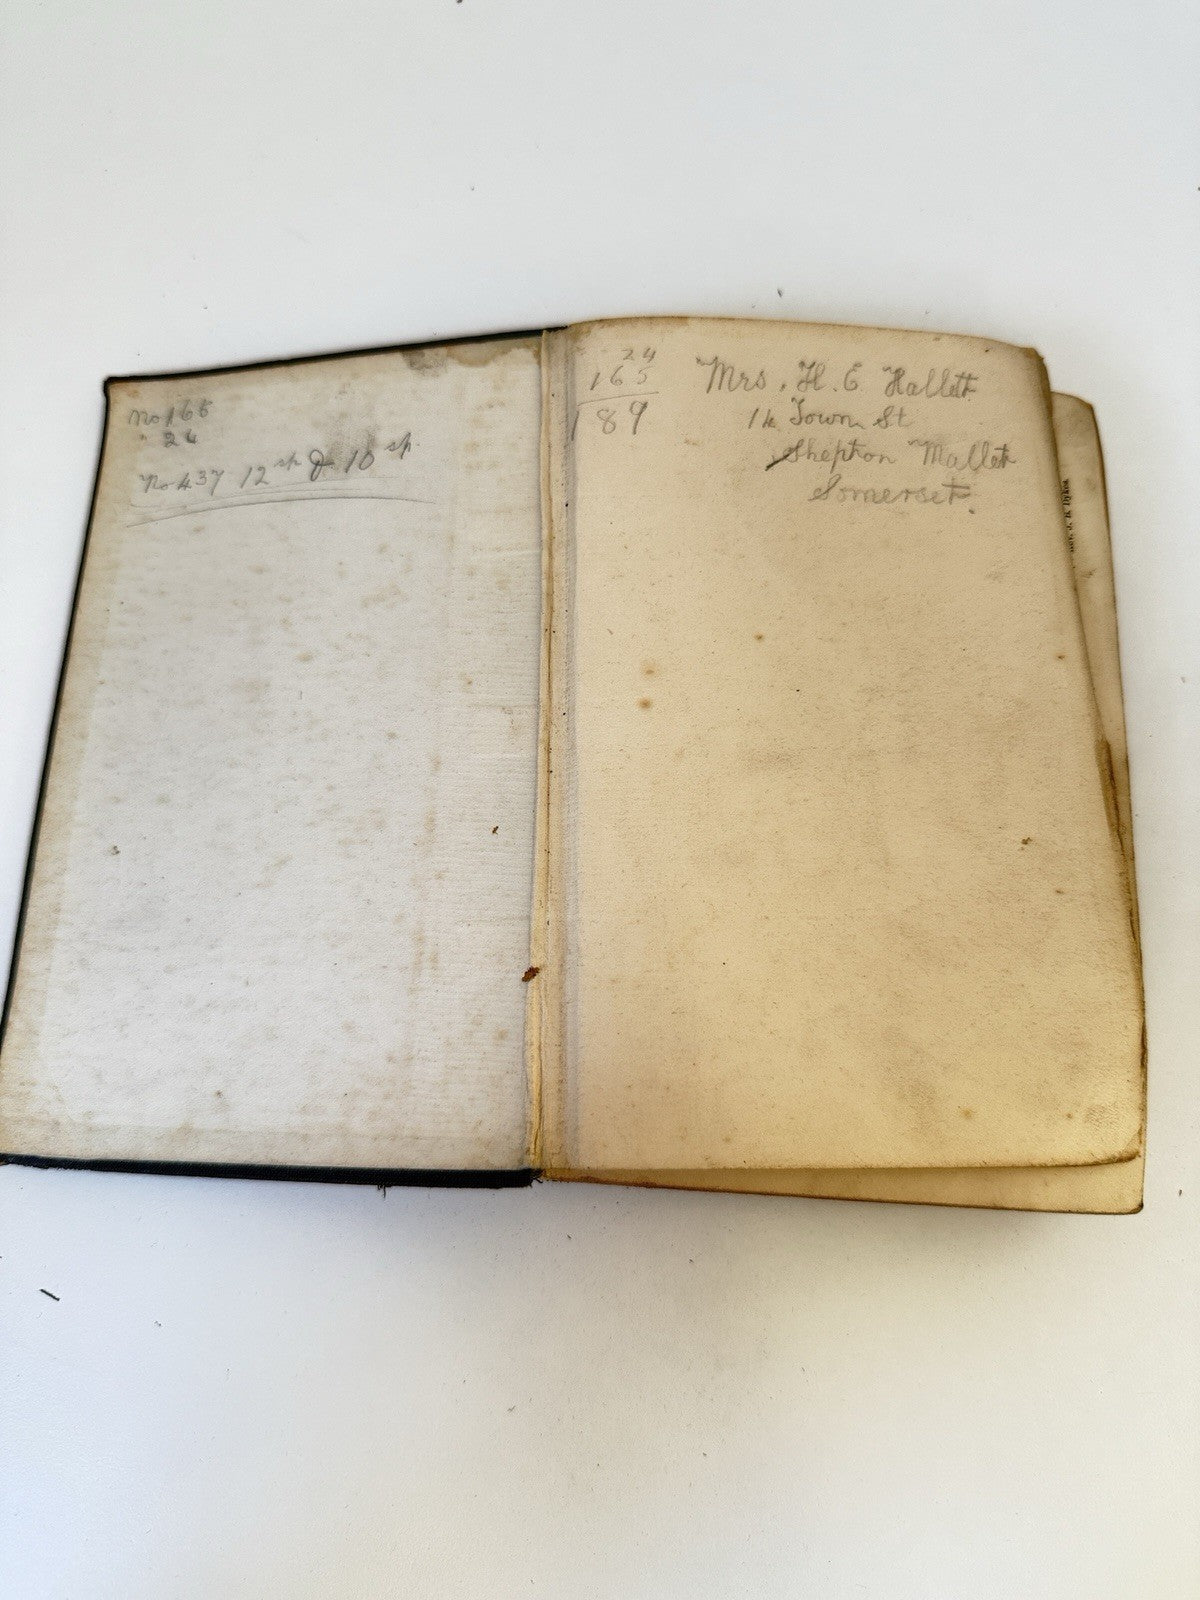 No 165
" 24
No 437 12 sp & 10 sp.
24
165
189
Mrs. H. E Hallett
14 Town St
Shepton Mallet
Somerset.
J. B. Dykes